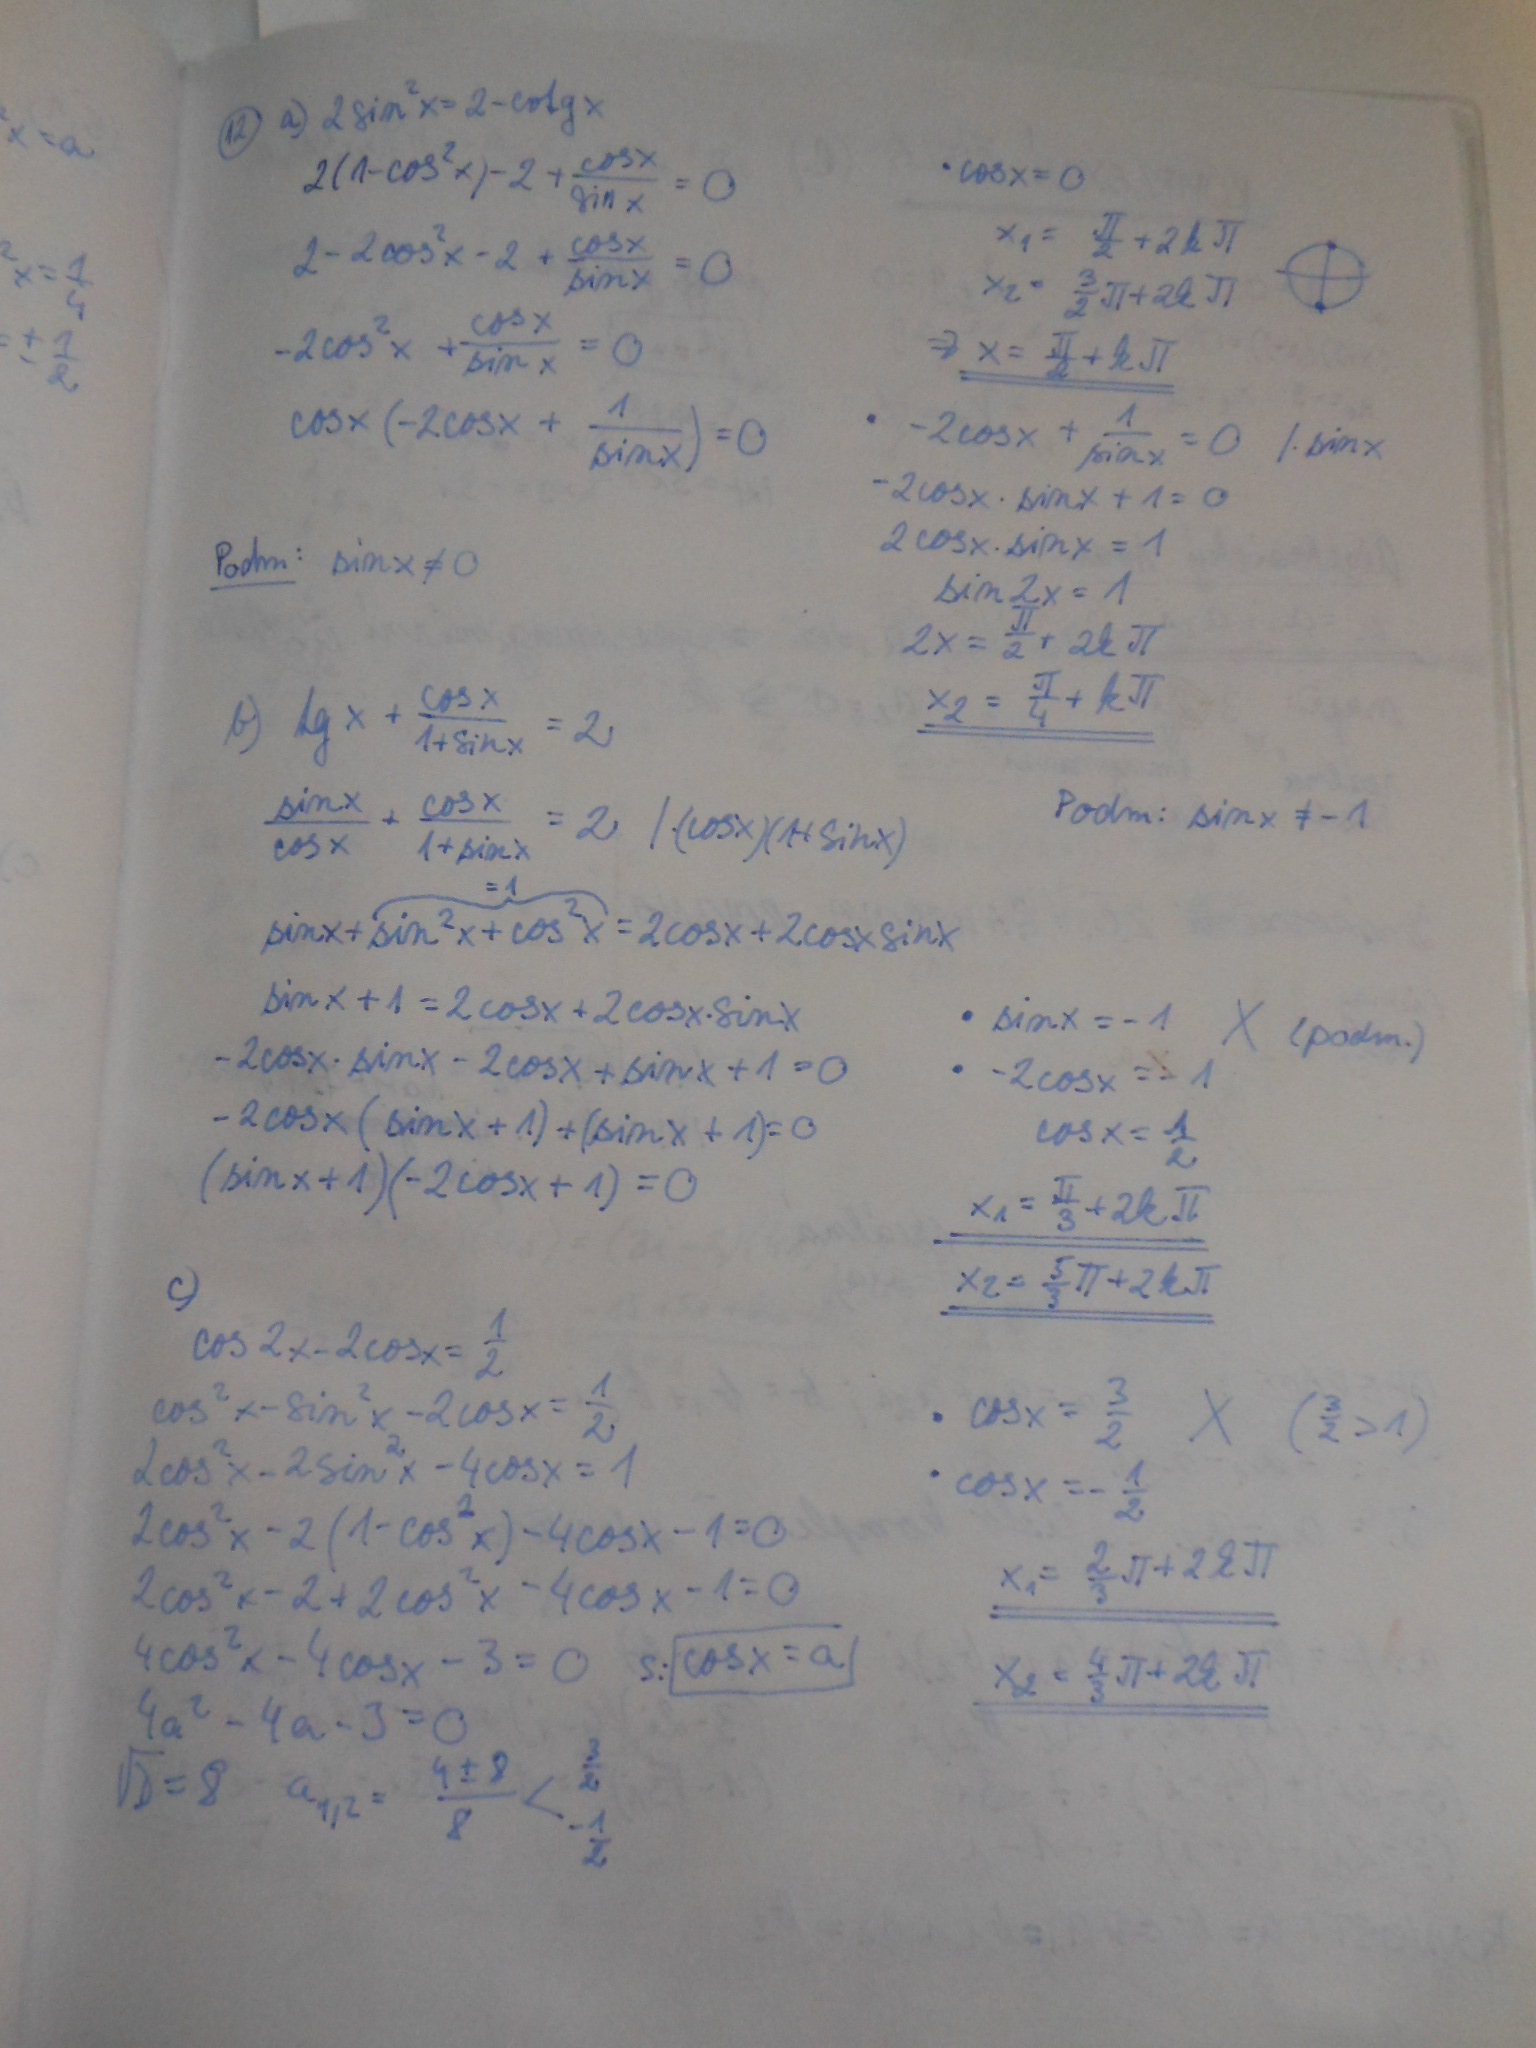 ²x = a
²x = 1/4
= ± 1/2
12 a) 2sin²x = 2 - cotg x
2(1-cos²x) - 2 + cosx/sinx = 0
2 - 2cos²x - 2 + cosx/sinx = 0
-2cos²x + cosx/sinx = 0
cosx (-2cosx + 1/sinx) = 0
Podm: sinx ≠ 0
• cosx = 0
x₁ = π/2 + 2kπ
x₂ = 3/2 π + 2kπ
⇒ x = π/2 + kπ
• -2cosx + 1/sinx = 0 /· sinx
-2cosx · sinx + 1 = 0
2cosx · sinx = 1
sin2x = 1
2x = π/2 + 2kπ
x₂ = π/4 + kπ
b) tg x + cosx/1+sinx = 2
sinx/cosx + cosx/1+sinx = 2 /·(cosx)(1+sinx)
Podm: sinx ≠ -1
= 1
sinx + sin²x + cos²x = 2cosx + 2cosx sinx
sinx + 1 = 2cosx + 2cosx·sinx
-2cosx · sinx - 2cosx + sinx + 1 = 0
-2cosx (sinx + 1) + (sinx + 1) = 0
(sinx + 1)(-2cosx + 1) = 0
• sinx = -1 X (podm.)
• -2cosx = -1
cosx = 1/2
x₁ = π/3 + 2kπ
x₂ = 5/3 π + 2kπ
c)
cos2x - 2cosx = 1/2
cos²x - sin²x - 2cosx = 1/2
2cos²x - 2sin²x - 4cosx = 1
2cos²x - 2(1-cos²x) - 4cosx - 1 = 0
2cos²x - 2 + 2cos²x - 4cosx - 1 = 0
4cos²x - 4cosx - 3 = 0 s: cosx = a
4a² - 4a - 3 = 0
√D = 8 a₁,₂ = 4±8/8 < 3/2
-1/2
• cosx = 3/2 X (3/2 > 1)
• cosx = -1/2
x₁ = 2/3 π + 2kπ
x₂ = 4/3 π + 2kπ